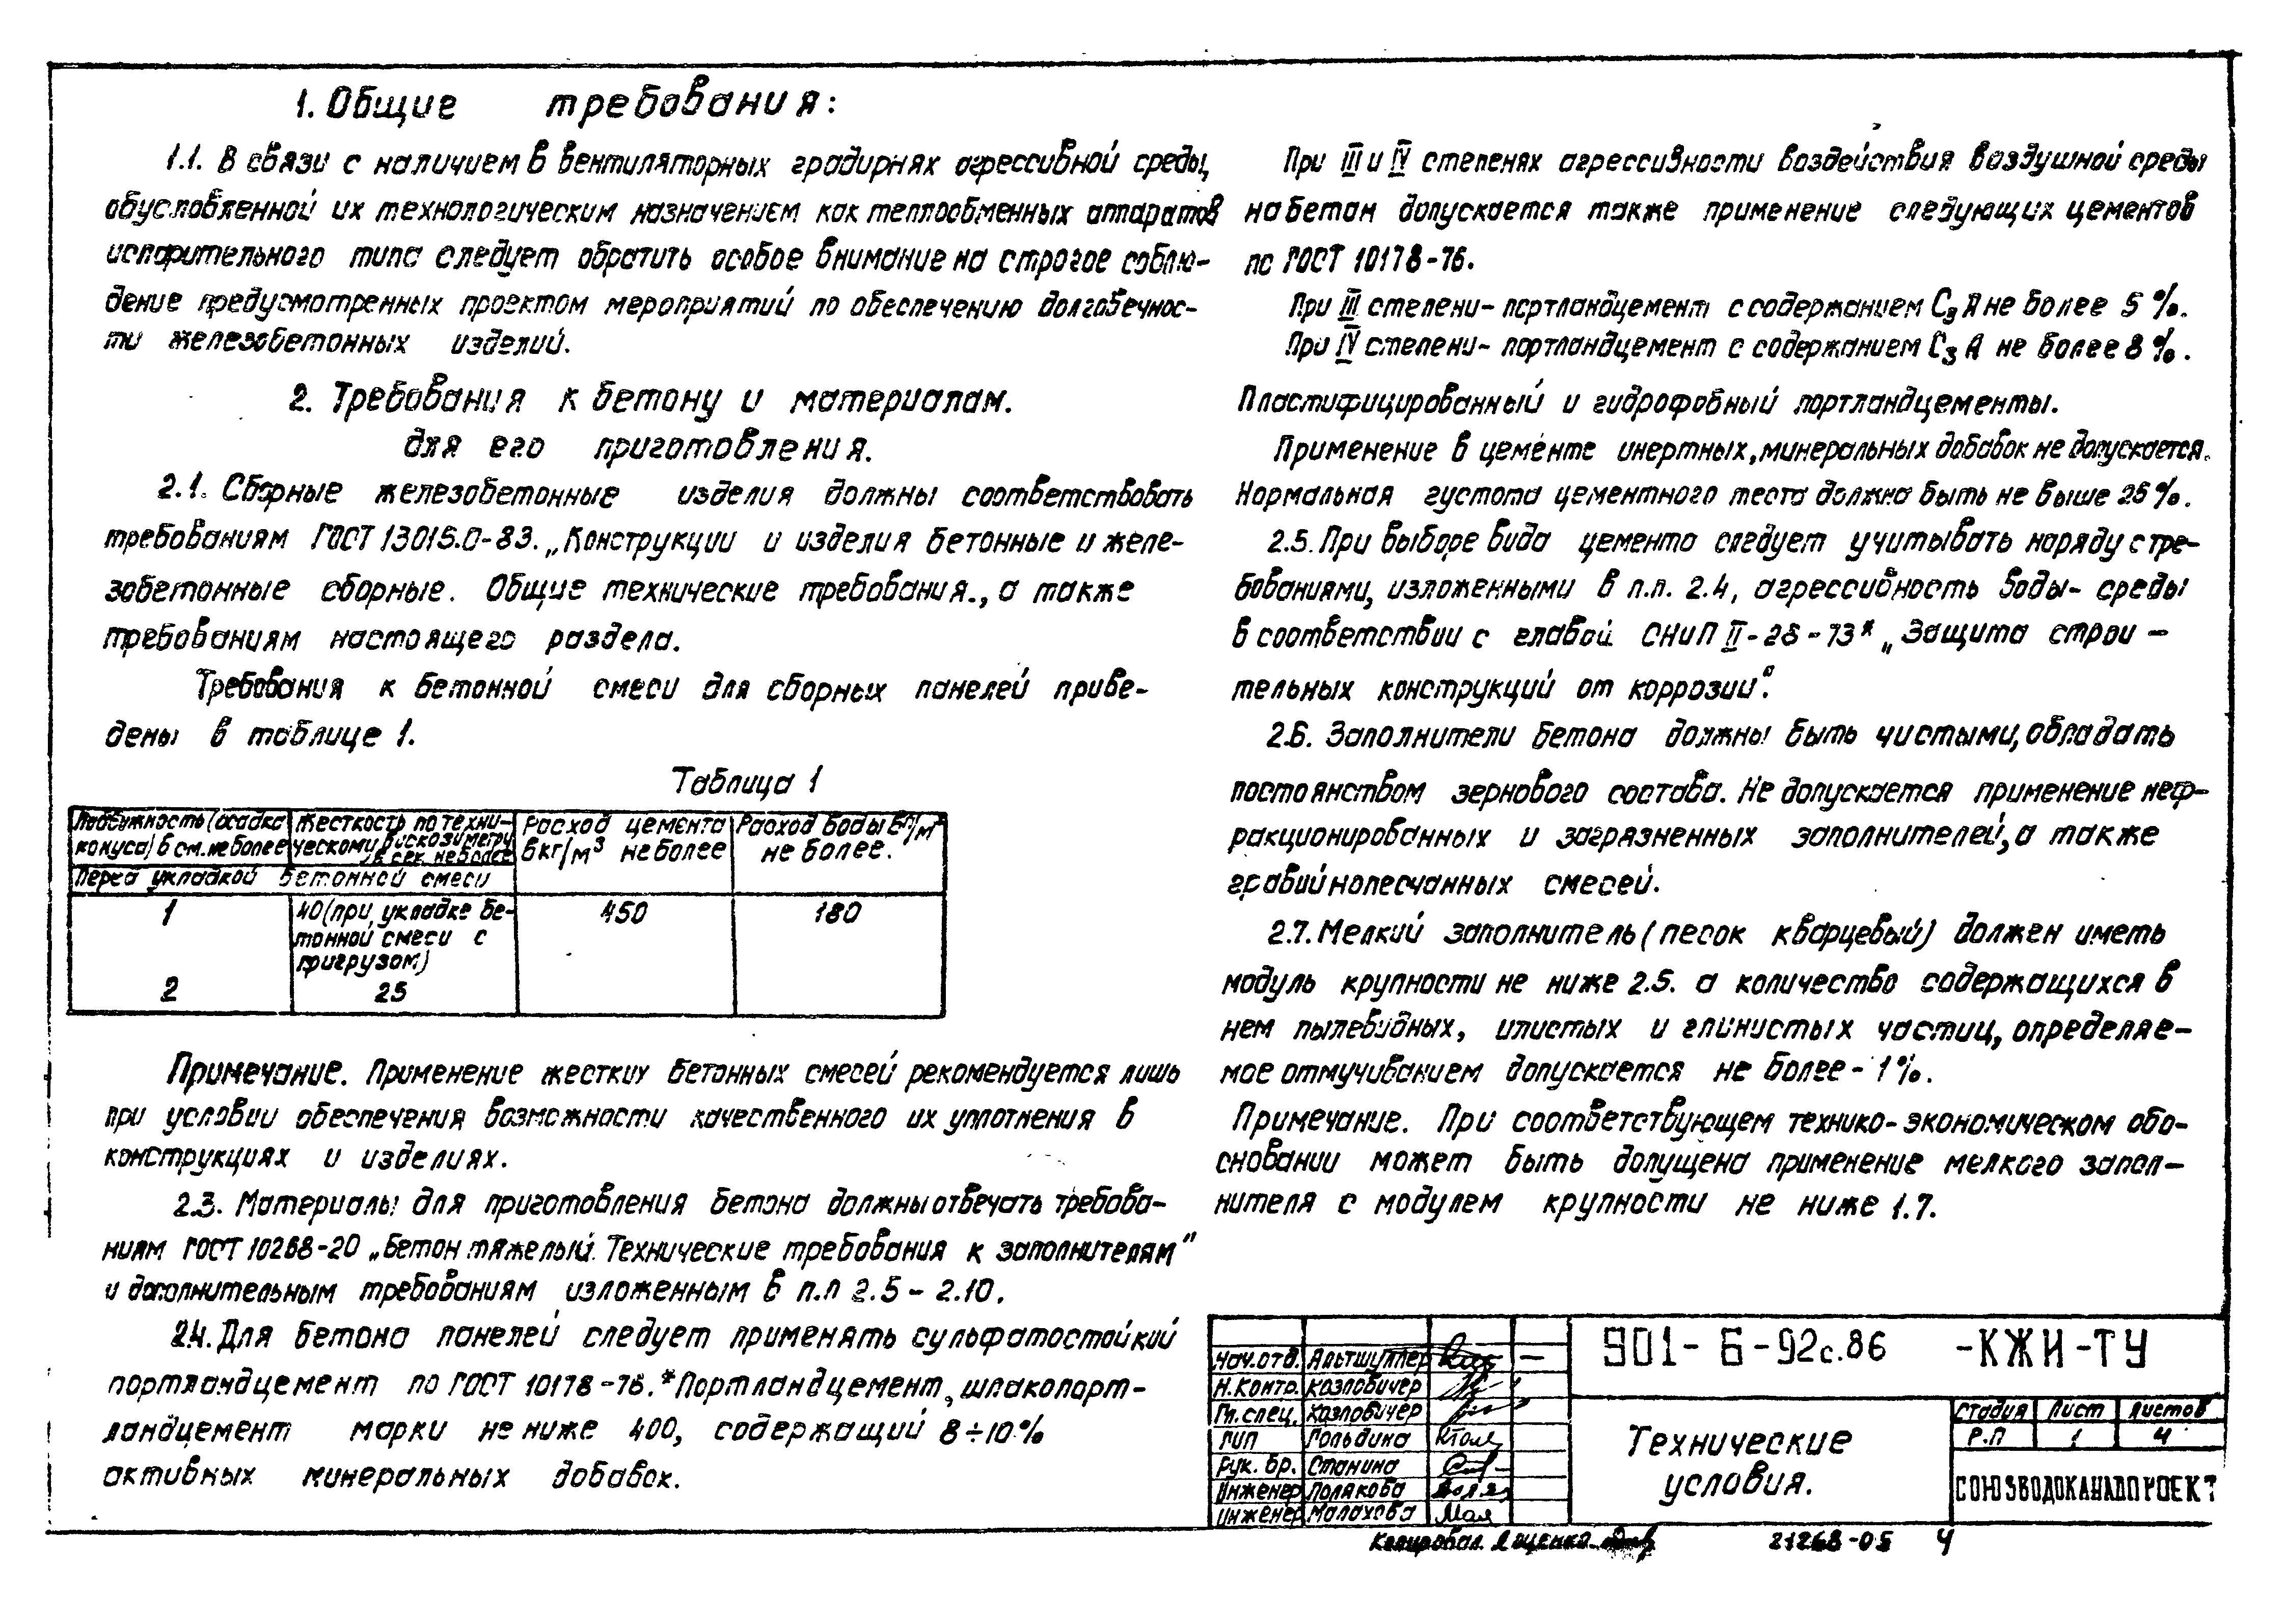 1. Общие требования:
1.1. В связи с наличием в вентиляторных градирнях агрессивной среды,
обусловленной их технологическим назначением как теплообменных аппаратов
испарительного типа следует обратить особое внимание на строгое соблю-
дение предусмотренных проектом мероприятий по обеспечению долговечнос-
ти железобетонных изделий.
2. Требования к бетону и материалам.
для его приготовления.
2.1. Сборные железобетонные изделия должны соответствовать
требованиям ГОСТ 13015.0-83. „Конструкции и изделия бетонные и желе-
зобетонные сборные. Общие технические требования., а также
требованиям настоящего раздела.
Требования к бетонной смеси для сборных панелей приве-
дены в таблице 1.
Таблица 1
Подвижность (осадка конуса) в см. не более
Жесткость по техни-
ческому вискозиметру
в сек. не более
Расход цемента
в кг/м³ не более
Расход воды в л/м³
не более.
Перед укладкой бетонной смеси
1 40 (при укладке бе- 450 180
тонной смеси с
пригрузом)
2 25
Примечание. Применение жестких бетонных смесей рекомендуется лишь
при условии обеспечения возможности качественного их уплотнения в
конструкциях и изделиях.
2.3. Материалы для приготовления бетона должны отвечать требова-
ниям ГОСТ 10268-20 „Бетон тяжелый. Технические требования к заполнителям"
и дополнительным требованиям изложенным в п.п 2.5 - 2.10.
2.4. Для бетона панелей следует применять сульфатостойкий
портландцемент по ГОСТ 10178-76.* Портландцемент, шлакопорт-
ландцемент марки не ниже 400, содержащий 8÷10%
активных минеральных добавок.
При III и IV степенях агрессивности воздействия воздушной среды
на бетон допускается также применение следующих цементов
по ГОСТ 10178-76.
При III степени- портландцемент с содержанием С₃А не более 5%.
При IV степени- портландцемент с содержанием С₃А не более 8%.
Пластифицированный и гидрофобный портландцементы.
Применение в цементе инертных, минеральных добавок не допускается.
Нормальная густота цементного теста должна быть не выше 25%.
2.5. При выборе вида цемента следует учитывать наряду с тре-
бованиями, изложенными в п.п. 2.4, агрессивность воды- среды
в соответствии с главой СНиП II-28-73* „Защита строи-
тельных конструкций от коррозии".
2.6. Заполнители бетона должны быть чистыми, обладать
постоянством зернового состава. Не допускается применение неф-
ракционированных и загрязненных заполнителей, а также
гравийнопесчанных смесей.
2.7. Мелкий заполнитель (песок кварцевый) должен иметь
модуль крупности не ниже 2.5. а количество содержащихся в
нем пылевидных, илистых и глинистых частиц, определяе-
мое отмучиванием допускается не более - 1%.
Примечание. При соответствующем технико-экономическом обо-
сновании может быть допущена применение мелкого запол-
нителя с модулем крупности не ниже 1.7.
Нач.отд. Альтшуллер
Н.контр. Казловичер
Гл.спец. Казловичер
ГИП Гольдина
Рук. бр. Станина
Инженер Полякова
Инженер Малахова
901-6-92с.86 -КЖИ-ТУ
Технические
условия.
Стадия Лист Листов
Р.П 1 4
СОЮЗВОДОКАНАЛПРОЕКТ
Копировал Яценко 21268-05 4